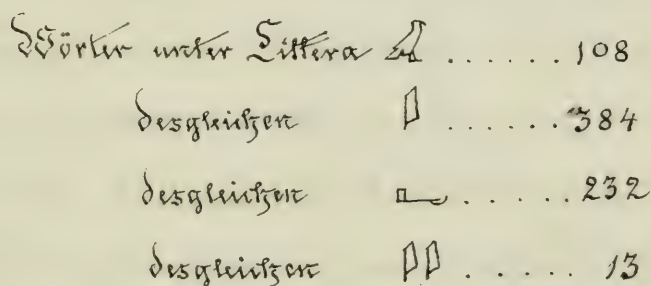 Wörter unter Littera 𓄿 . . . . . . 108
desgleichen 𓇋 . . . . . . 384
desgleichen 𓂝 . . . . . . 232
desgleichen 𓇋𓇋 . . . . . 13